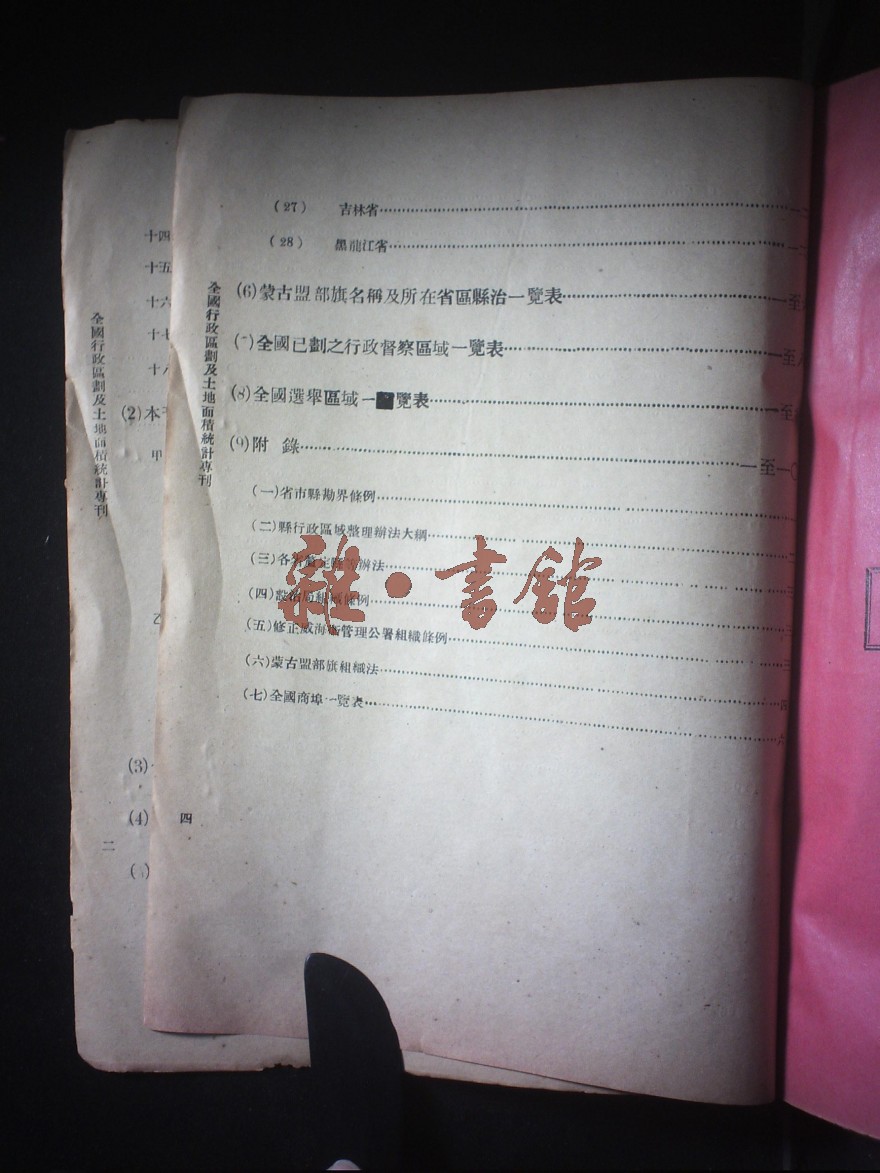 (27) 吉林省
(28) 黑龍江省
(6)蒙古盟部旗名稱及所在省區縣治一覽表 一至
(7)全國已劃之行政督察區域一覽表 一至八
(8)全國選舉區域一覽表 一至
(9)附錄 一至一〇
(一)省市縣勘界條例
(二)縣行政區域整理辦法大綱
(三)各 辦法
(四)設治局組織條例
(五)修正威海衛管理公署組織條例
(六)蒙古盟部旗組織法 四
(七)全國商埠一覽表 六
全國行政區劃及土地面積統計專刊
四
十四
十五
十六
十七
十八
(2)本
甲
(3)
(4)
全國行政區劃及土地面積統計專刊
二
雜·書館